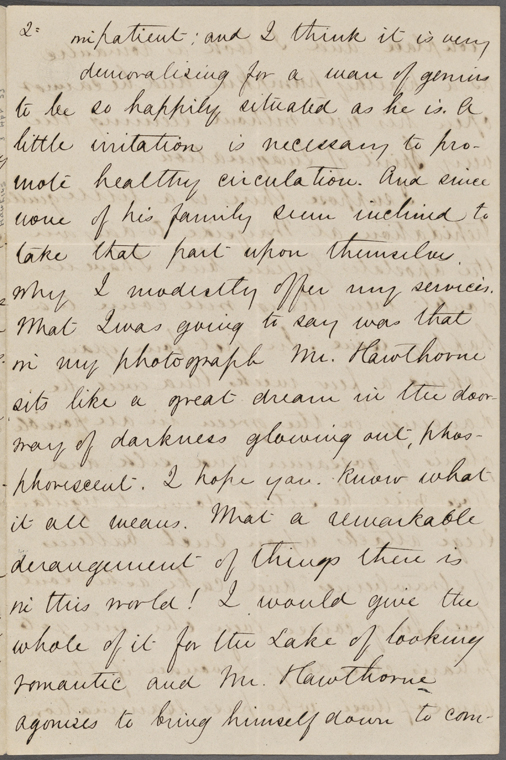 2= impatient; and I think it is very
demoralising for a man of genius
to be so happily situated as he is. A
little irritation is necessary to pro-
mote healthy circulation. And since
none of his family seem inclined to
take that part upon themselves,
why I modestly offer my services.
What I was going to say was that
in my photograph Mr. Hawthorne
sits like a great dream in the door-
way of darkness glowing out, phos-
phorescent. I hope you know what
it all means. What a remarkable
derangement of things there is
in this world! I would give the
whole of it for the sake of looking
romantic and Mr. Hawthorne
agonises to bring himself down to com-